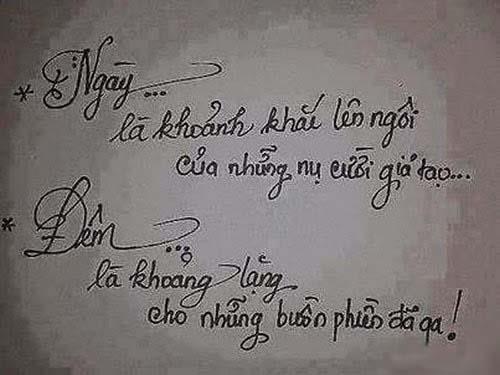 * Ngày...
là khoảnh khắc lên ngôi
của những nụ cười giả tạo...
* Đêm...
là khoảng lặng
cho những buồn phiền đã qa!